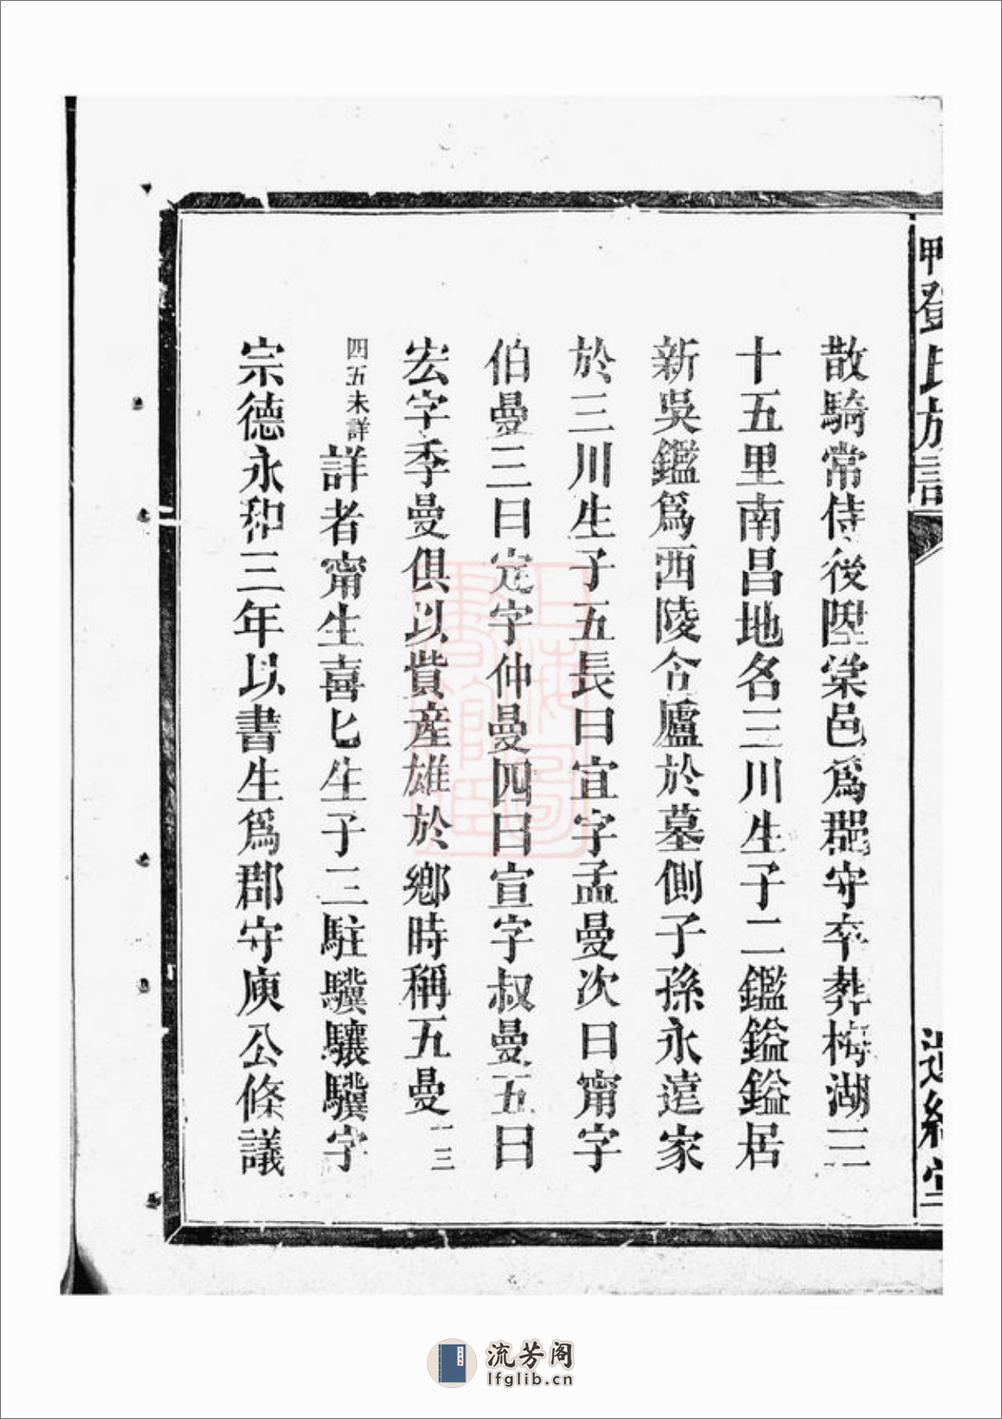 鄧氏族譜
遺經堂
散騎常侍後陞棠邑爲郡守卒葬梅湖三
十五里南昌地名三川生子二鑑鎰鎰居
新吳鑑爲西陵令廬於墓側子孫永遠家
於三川生子五長曰宜字孟曼次曰甯字
伯曼三曰定字仲曼四曰宣字叔曼五曰
宏字季曼俱以貲産雄於鄉時稱五曼一三
四五未詳詳者甯生喜匕生子三駐驥驤驥字
宗德永和三年以書生爲郡守庾公條議
流芳阁
lfglib.cn